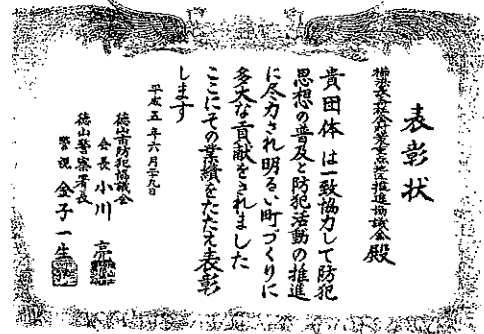 表彰状
推進協議会殿
貴団体は一致協力して防犯
思想の普及と防犯活動の推進
に尽力され明るい町づくりに
多大な貢献をされました
ここにその業績をたたえ表彰
します
平成五年六月二九日
徳山市防犯協議会
会長 小川 亮
徳山警察署長
警視 金子一生